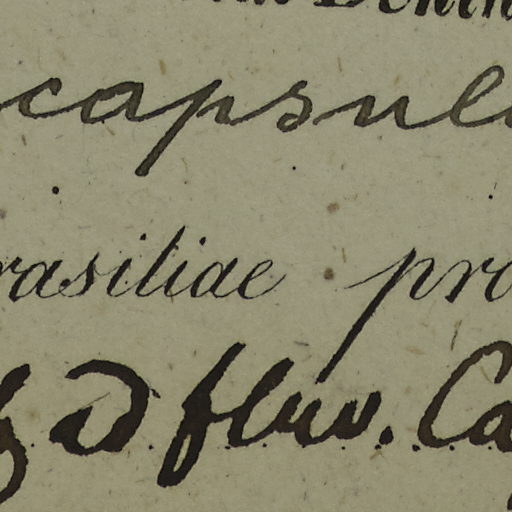 capsul
rasiliae pro
ad fluv. Ca